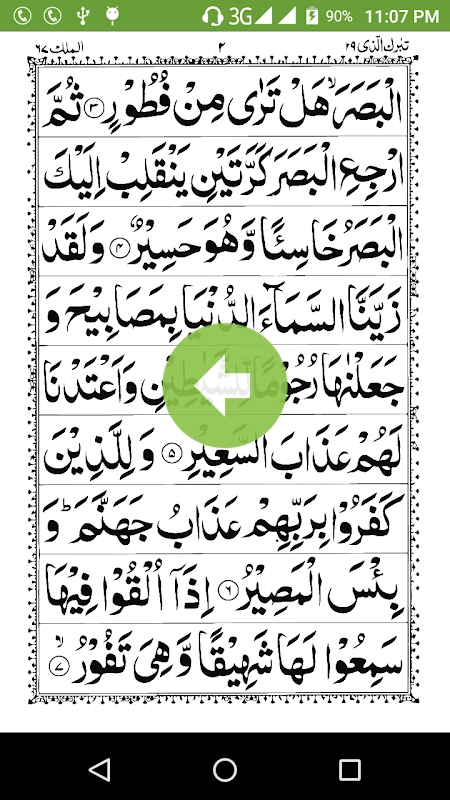 3G 90% 11:07 PM
تبرك الذى ٢٩ ٢ الملك ٦٧
الْبَصَرَ ۙ هَلْ تَرٰى مِنْ فُطُوْرٍ ﴿۳﴾ ثُمَّ
ارْجِعِ الْبَصَرَ كَرَّتَيْنِ يَنْقَلِبْ اِلَيْكَ
الْبَصَرُ خَاسِئًا وَّهُوَ حَسِيْرٌ ﴿۴﴾ وَلَقَدْ
زَيَّنَّا السَّمَآءَ الدُّنْيَا بِمَصَابِيْحَ وَ
جَعَلْنٰهَا رُجُوْمًا لِّلشَّيٰطِيْنِ وَاَعْتَدْنَا
لَهُمْ عَذَابَ السَّعِيْرِ ﴿۵﴾ وَلِلَّذِيْنَ
كَفَرُوْا بِرَبِّهِمْ عَذَابُ جَهَنَّمَ ؕ وَ
بِئْسَ الْمَصِيْرُ ﴿۶﴾ اِذَآ اُلْقُوْا فِيْهَا
سَمِعُوْا لَهَا شَهِيْقًا وَّهِىَ تَفُوْرُ ۙ ﴿۷﴾